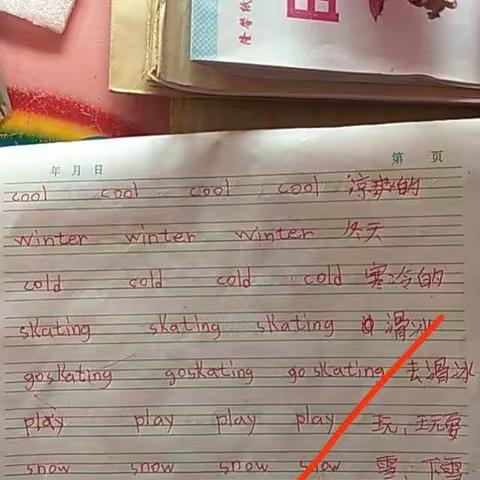 隆
年 月 日 第 页
cool cool cool cool 凉爽的
winter winter winter 冬天
cold cold cold cold 寒冷的
skating skating skating 滑冰
goskating goskating go skating 去滑冰
play play play play 玩，玩耍
snow snow snow snow 雪，下雪